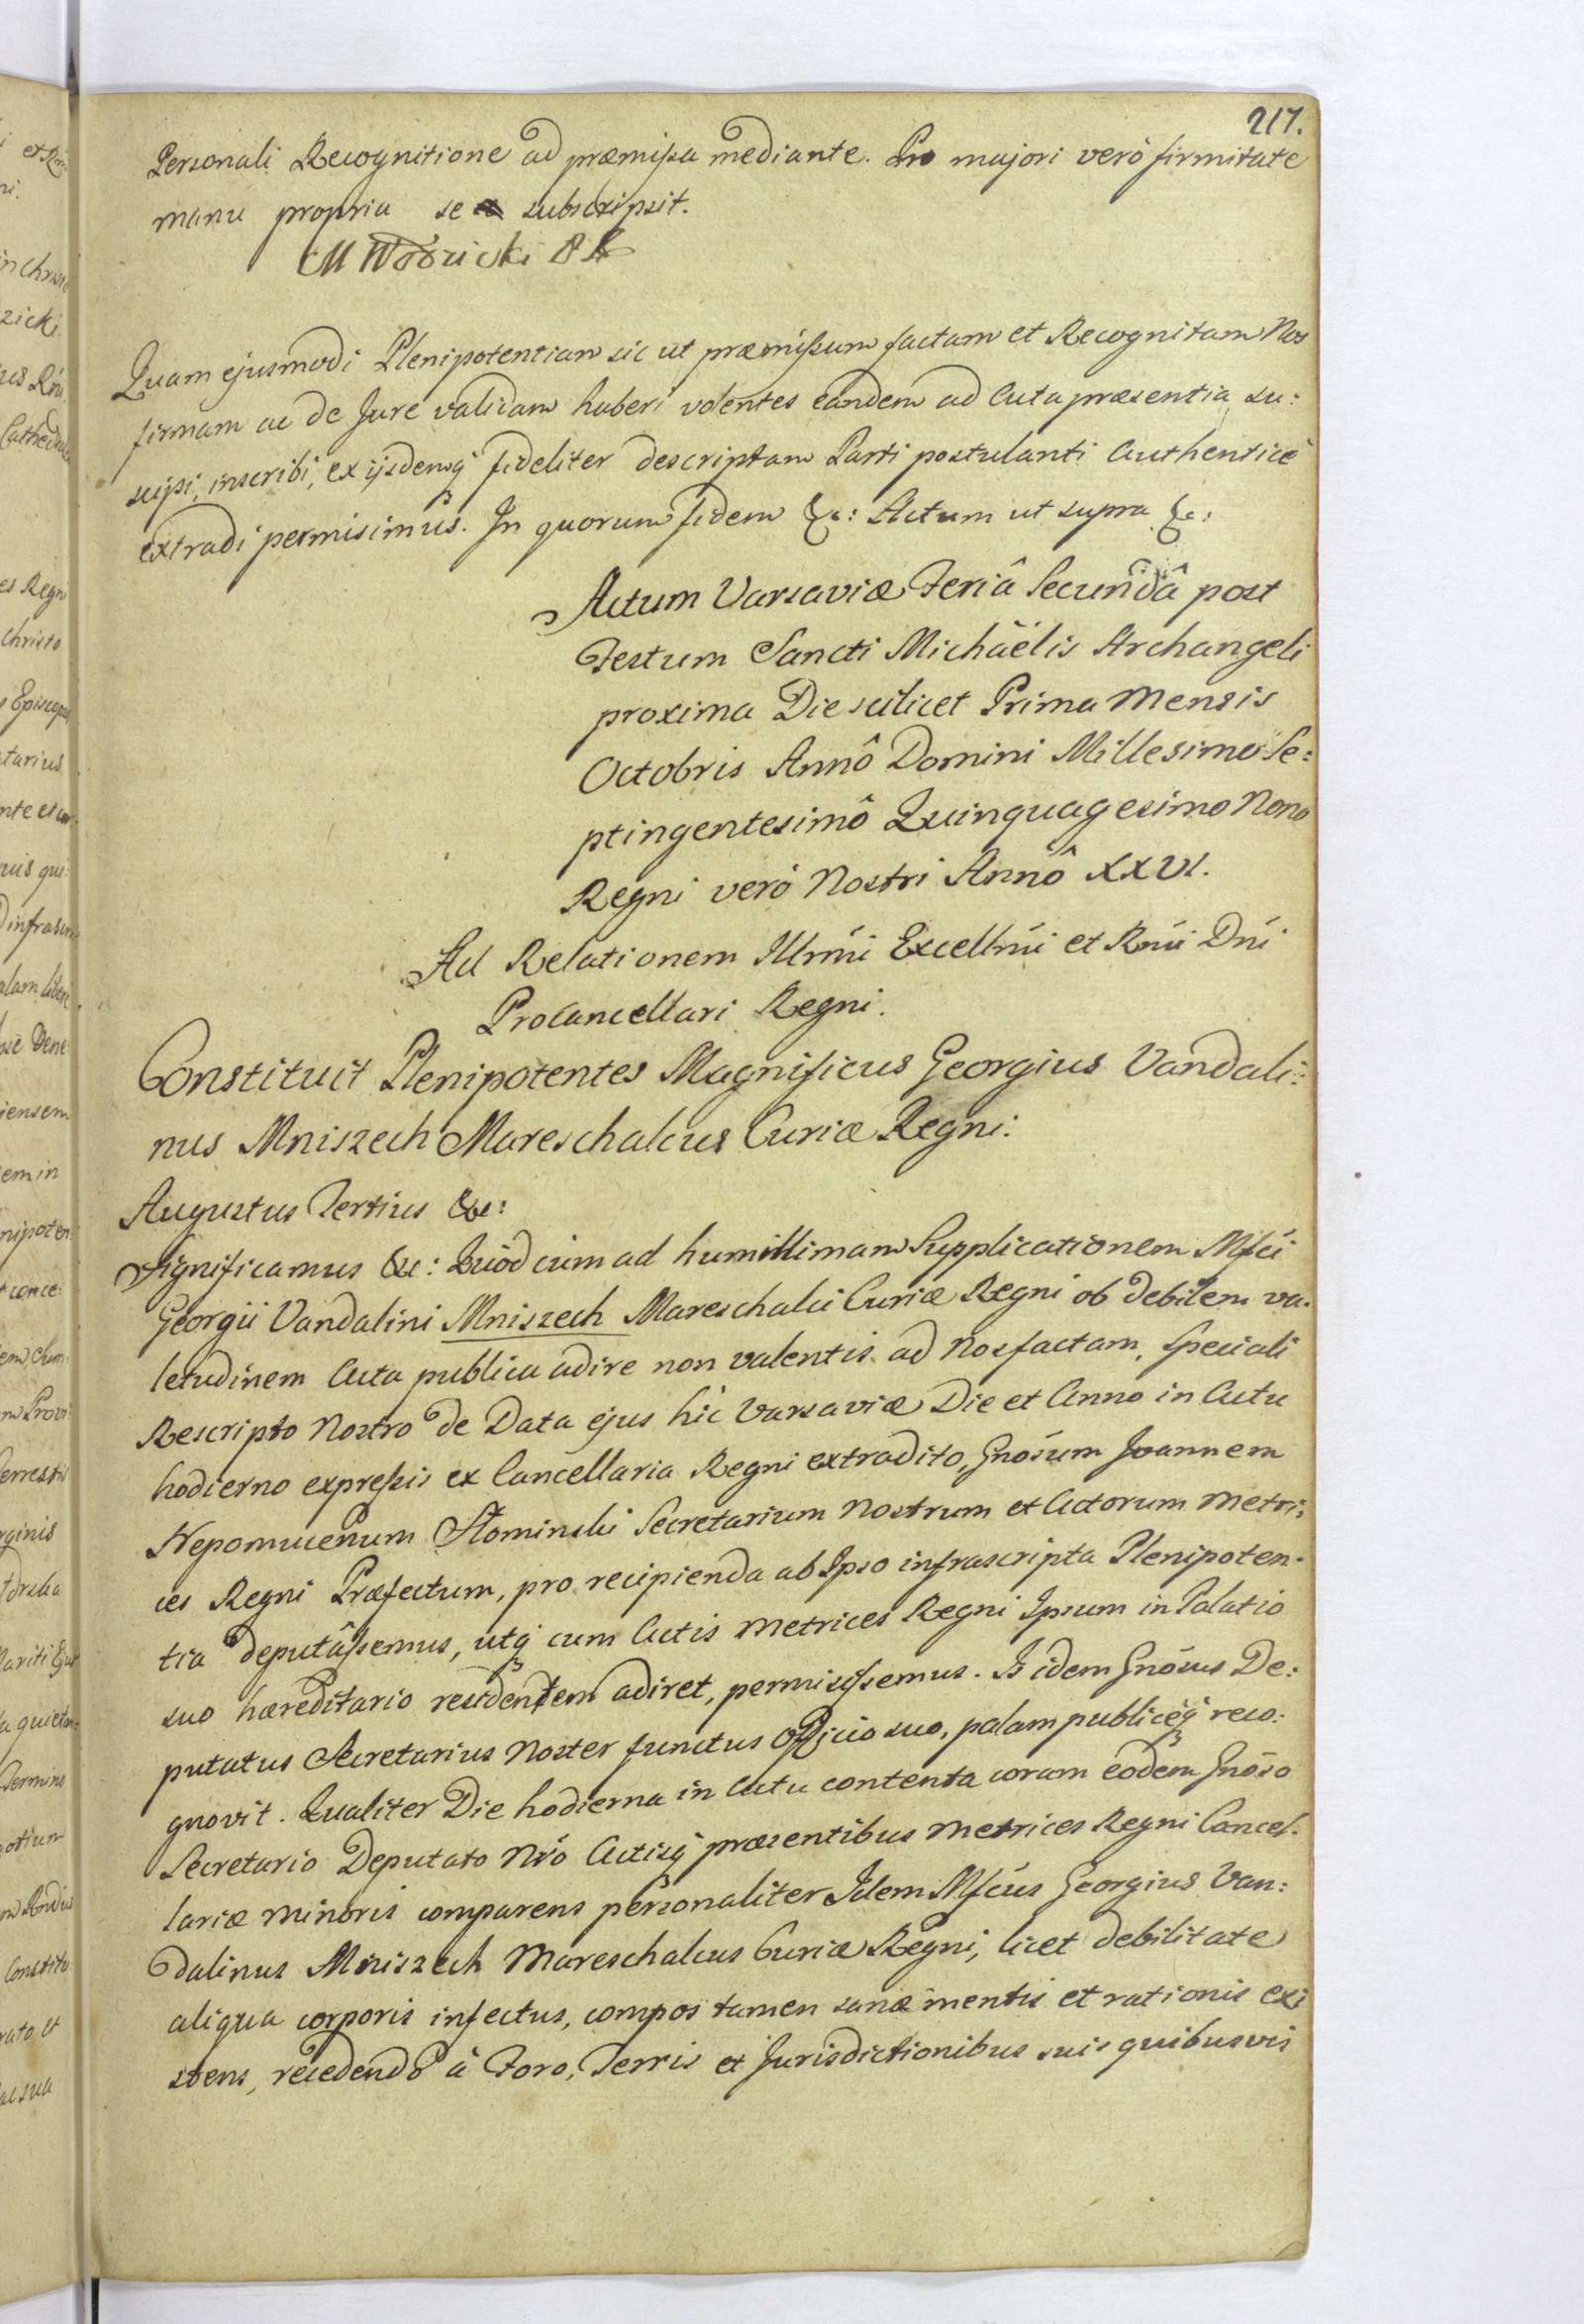 217.
Personali Recognitione ad præmissa mediante. Pro majori verò firmitate
manu propria se subscripsit.
M Wodzicki
Quam ejusmodi Plenipotentiam sic ut præmissum factam et Recognitam Nos
firmam ac de Jure validam haberi volentes eandem ad Acta præsentia su:
scipi, inscribi, ex ijsdemq́ fideliter descriptam Parti postulanti Authenticè
extradi permisimus. In quorum fidem &c: Actum ut supra &c:
Actum Varsaviæ Feriâ Secundâ post
Festum Sancti Michäelis Archangeli
proxima Die scilicet Prima Mensis
Octobris Annô Domini Millesimo Se:
ptingentesimô Quinquagesimo Nono
Regni verò Nostri Annô XXVI.
Ad Relationem Illmi Excellmi et Rmi Dni
Procancellari Regni.
Constituit Plenipotentes Magnificus Georgius Vandali:
nus Mniszech Mareschalcus Curiæ Regni.
Augustus Tertius &c:
Significamus &c: Quòd cùm ad humillimam Supplicationem Mfci
Georgii Vandalini Mniszech Mareschalci Curiæ Regni ob debilem va.
letudinem Acta publica adire non valentis ad Nos factam, Speciali
Rescripto Nostro de Data ejus hic Varsaviæ Die et Anno in Actu
hodierno expressis ex Cancellaria Regni extradito, Gnosum Joannem
Nepomucenum Słominski Secretarium Nostrum et Actorum Metri:
ces Regni Præfectum, pro recipienda ab Ipso infrascripta Plenipoten.
tia deputâssemus, utq́ cum Actis Metrices Regni Ipsum in Palatio
suo hæreditario residentem adiret, permisissemus. Is idem Gnosus De:
putatus Secretarius Noster functus officio suo, palam publicèq́ reco:
gnovit. Qualiter Die hodierna in Actu contenta coram eodem Gnoso
Secretario Deputato Nro Actisq́ præsentibus Metrices Regni Cancel.
lariæ Minoris comparens personaliter Idem Mfcus Georgius Van:
dalinus Mniszech Mareschalcus Curiæ Regni, licet debilitate
aliqua corporis infectus, compos tamen sanæ mentis et rationis exi
stens, recedendo à Foro, Terris et Jurisdictionibus suis quibusvis